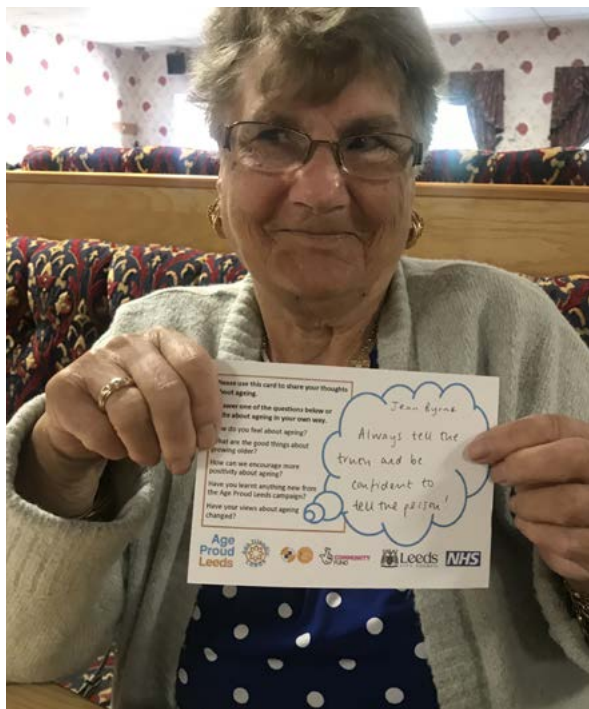 Please use this card to share your thoughts
about ageing.
Answer one of the questions below or
write about ageing in your own way.
How do you feel about ageing?
What are the good things about
growing older?
How can we encourage more
positivity about ageing?
Have you learnt anything new from
the Age Proud Leeds campaign?
Have your views about ageing
changed?
Jean Byrne
Always tell the
truth and be
confident to
tell the person!
Age
Proud
Leeds
COMMUNITY
FUND
Leeds
CITY COUNCIL
NHS